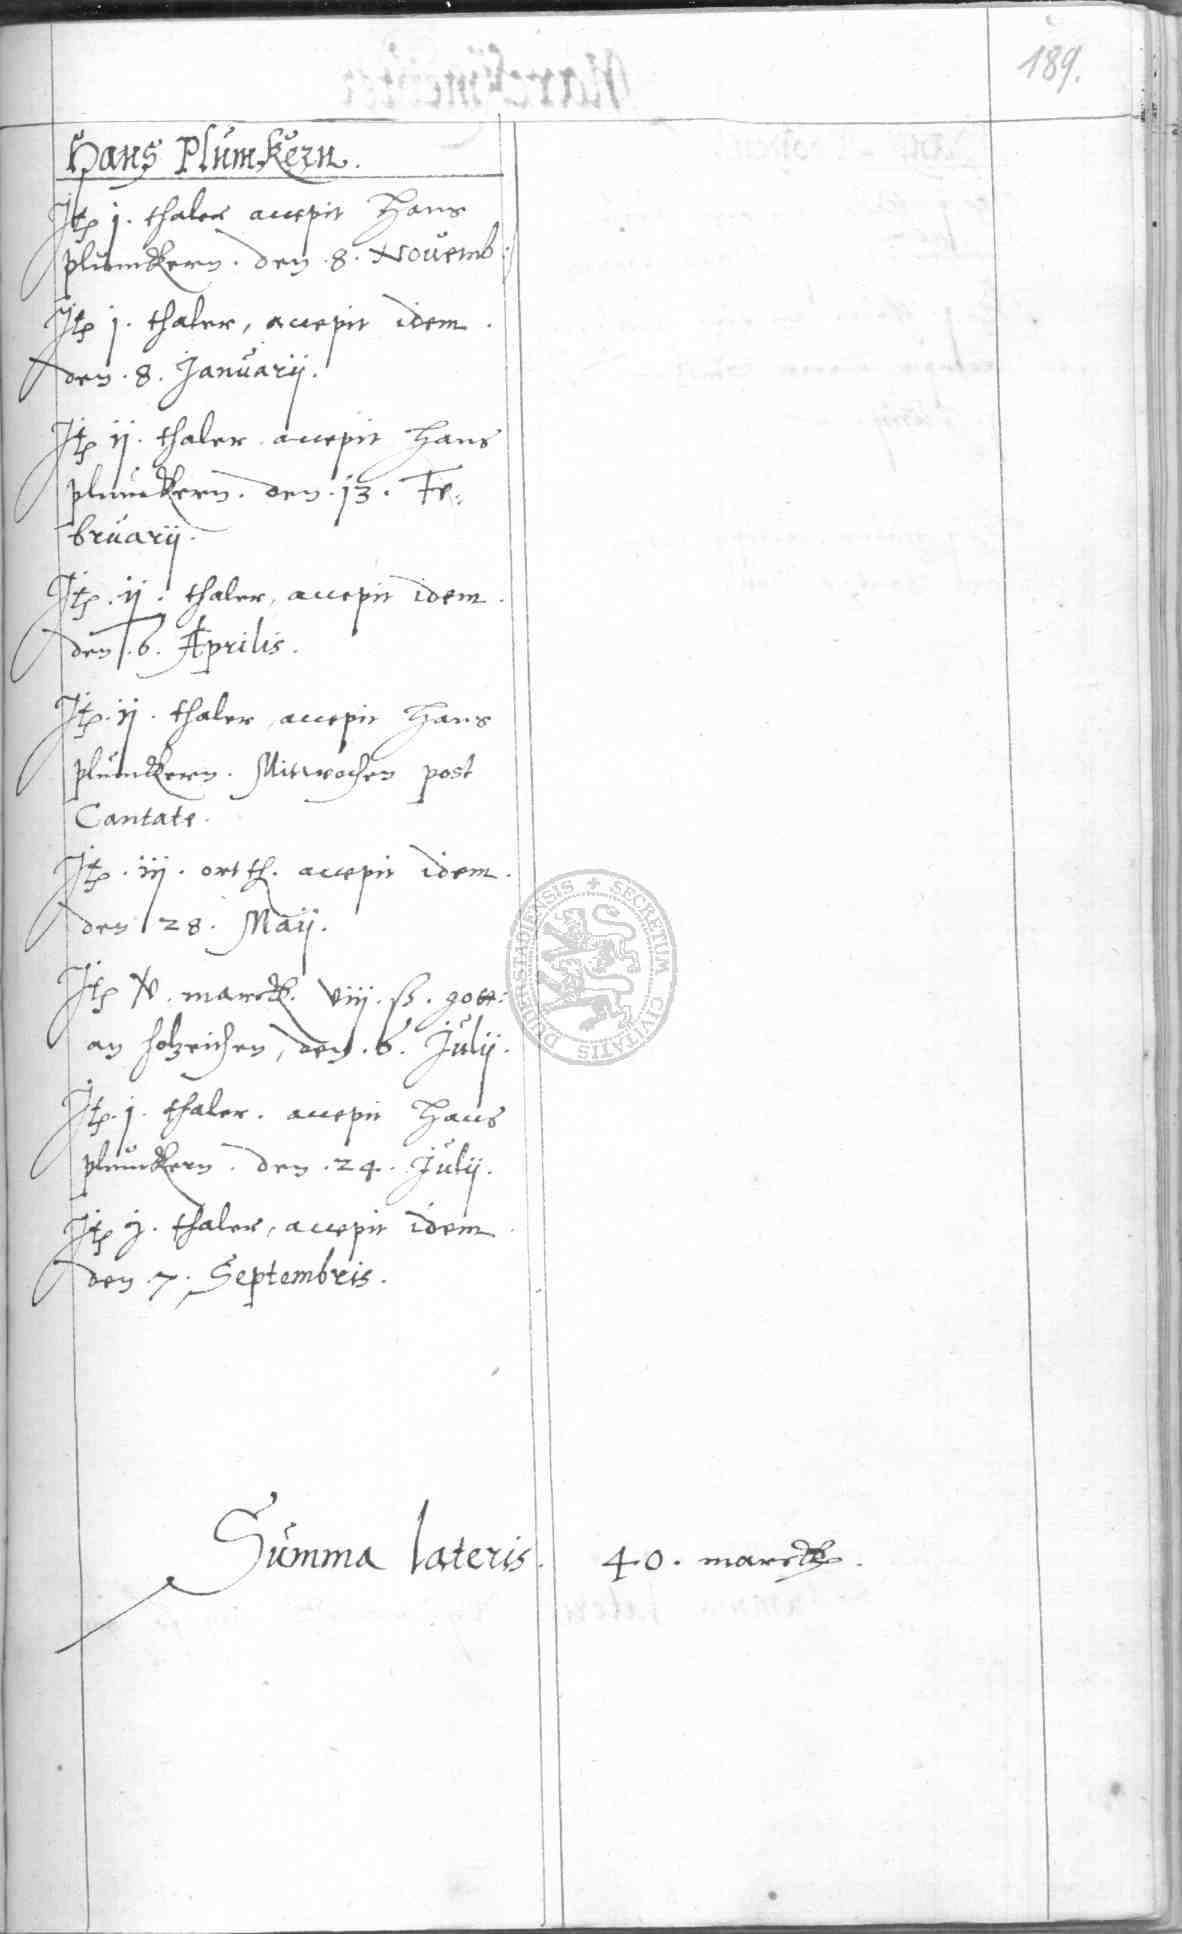 189.
Hans Plumkern.
Itē j. thaler accepit Hans
plumckern. den .8. Novemb:
Itē j. thaler, accepit idem.
den .8. Januarij.
Itē ij. thaler accepit Hans
plumckern. den .13. Fe=
bruarij.
Itē .ij. thaler, accepit idem.
den .6. Aprilis.
Itē .ij. thaler, accepit Hans
plumckern. Mitwochen post
Cantate.
Itē .iij. ort th. accepit idem.
den 28. Maij.
Itē marck. viij. ß.
an holzeichen, den .6. Julij.
Itē .j. thaler. accepit Hans
plumckern. den .24. Julij.
Itē j. thaler, accepit idem.
den .7. Septembris.
SECRETUM CIVITATIS DUDERSTADIENSIS
Summa lateris. 40. marck.